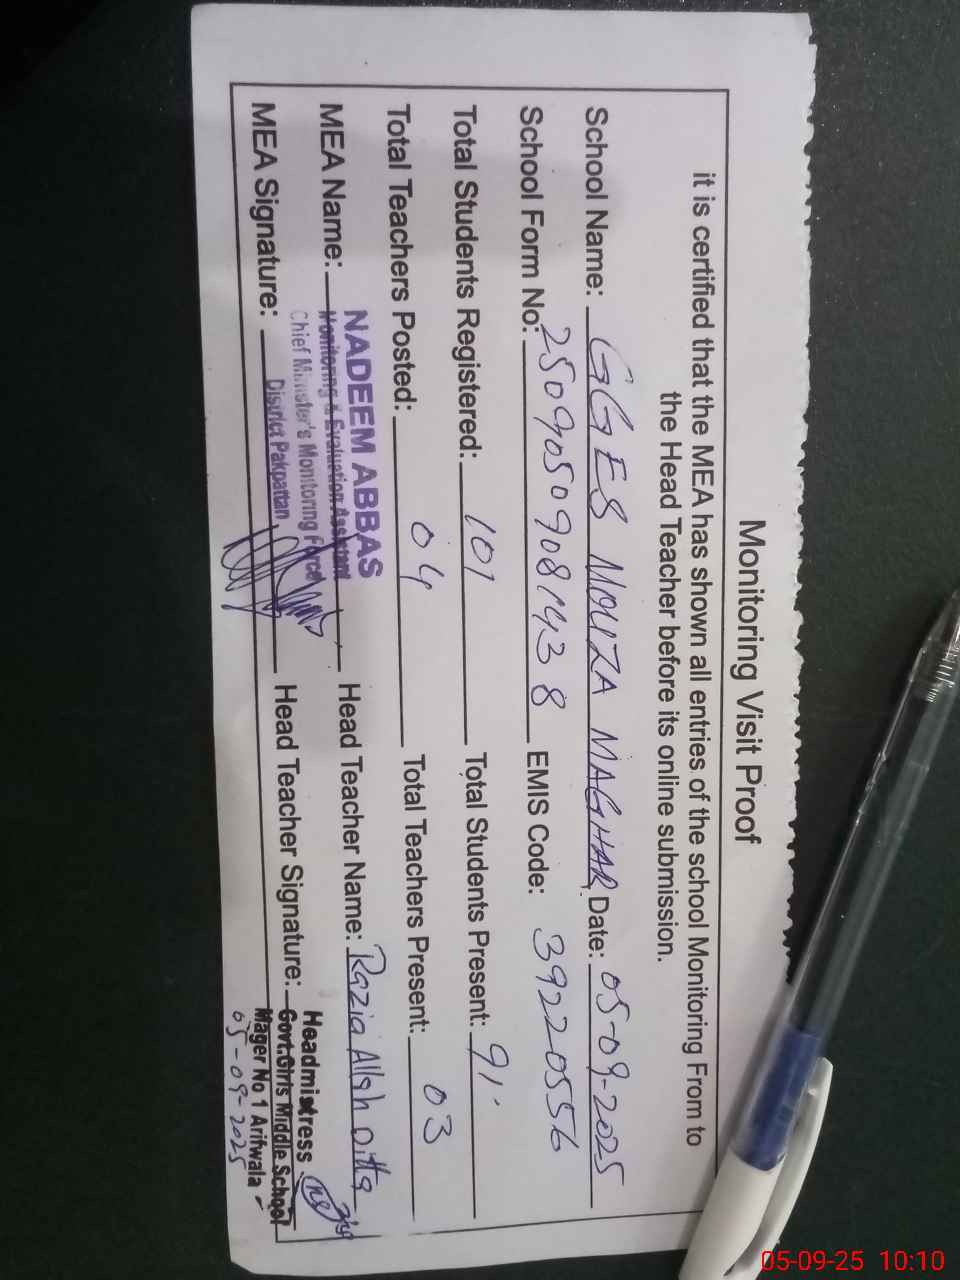 Monitoring Visit Proof
it is certified that the MEA has shown all entries of the school Monitoring From to
the Head Teacher before its online submission.
School Name: GGES MOUZA MAGHAR Date: 05-09-2025
School Form No: 25090509081438 EMIS Code: 39220556
Total Students Registered: 101 Total Students Present: 91
Total Teachers Posted: 04 Total Teachers Present: 03
MEA Name: NADEEM ABBAS Head Teacher Name: Razia Allah Ditta
Monitoring & Evaluation Assistant
Chief Minister's Monitoring Force
District Pakpattan
MEA Signature: Head Teacher Signature:
Headmistress
Govt.Girls Middle School
Mager No 1 Arifwala
05-09-2025
05-09-25 10:10